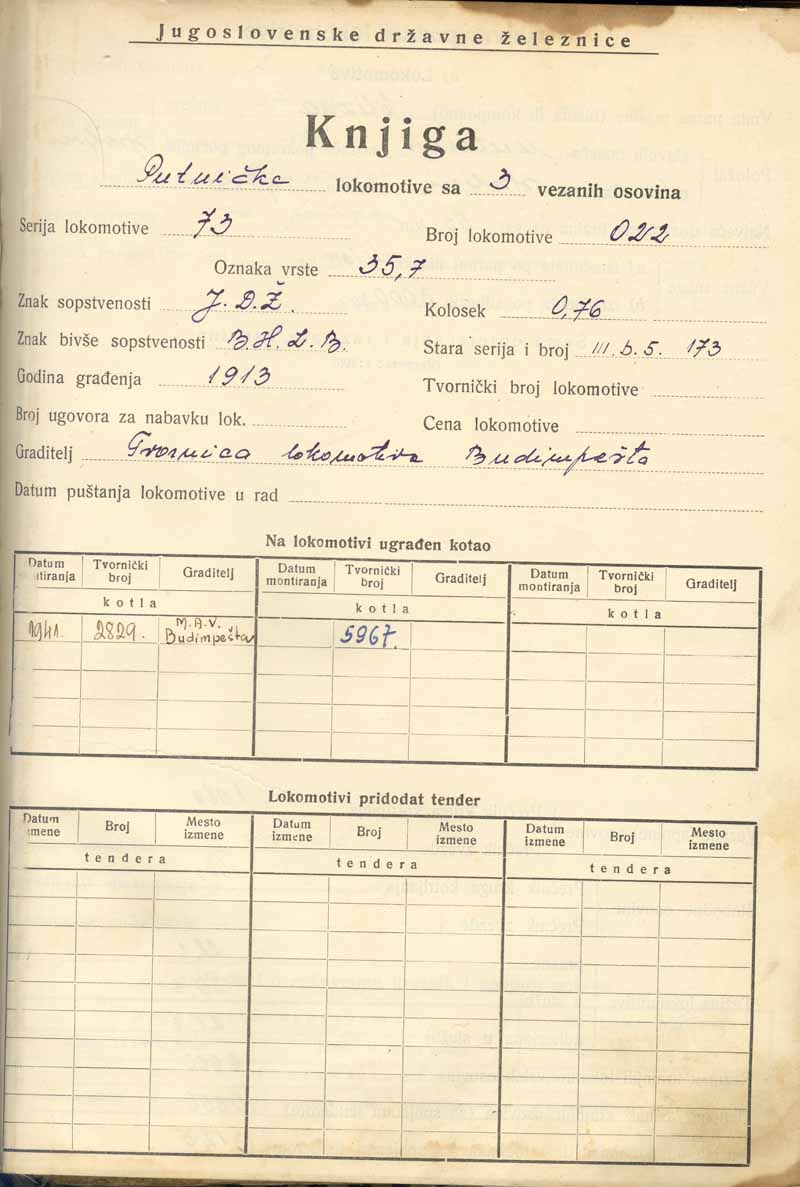 Jugoslovenske državne železnice
Knjiga
Putnička lokomotive sa 3 vezanih osovina
Serija lokomotive 73 Broj lokomotive 022
Oznaka vrste 35,7
Znak sopstvenosti J.D.Ž. Kolosek 0,76
Znak bivše sopstvenosti B.H.L.B. Stara serija i broj III.b.5. 173
Godina građenja 1913 Tvornički broj lokomotive
Broj ugovora za nabavku lok. Cena lokomotive
Graditelj Tvornica lokomotiva Budimpešta
Datum puštanja lokomotive u rad
Na lokomotivi ugrađen kotao
Datum Tvornički Graditelj Datum Tvornički Graditelj Datum Tvornički Graditelj
ntiranja broj montiranja broj montiranja broj
kotla kotla kotla
1941. 2829. M.A.V. Budimpešta 5967.
Lokomotivi pridodat tender
Datum Broj Mesto Datum Broj Mesto Datum Broj Mesto
zmene izmene izmene izmene izmene izmene
tendera tendera tendera